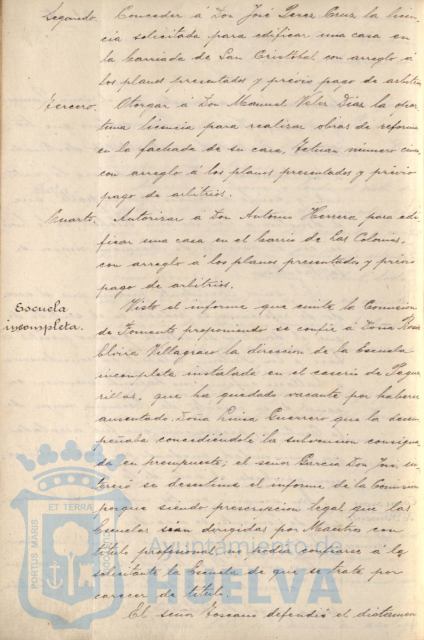 Segundo. Conceder á Don José Perez Cruz la licen-
cia solicitada para edificar una casa en
la barriada de San Cristóbal con arreglo á
los planos presentados y prévio pago de arbitrios
Tercero. Otorgar á Don Manuel Velez Díaz la opor-
tuna licencia para realizar obras de reforma
en la fachada de su casa, Tetuan número
con arreglo á los planos presentados y prévio
pago de arbitrios.
Cuarto. Autorizar a Don Antonio Herrera para edi-
ficar una casa en el barrio de Las Colonias,
con arreglo á los planos presentados y prévio
pago de arbitrios.
Escuela
incompleta.
Visto el informe que emite la Comision
de Fomento proponiendo se confie á Doña Rosa
Elvira Villagraso la direccion de la Escuela
incompleta instalada en el caserio de Pegue-
rillas, que ha quedado vacante por haberse
ausentado Doña Luisa Guerrero que la desem-
peñaba concediéndole la subvencion consigna-
da en presupuesto; el señor Garcia Don José, in-
teresó se desestime el informe de la Comision
porque siendo prescripcion legal que las
Escuelas sean dirigidas por Maestros con
título profesional no podia confiarse á la
solicitante la Escuela de que se trata por
carecer de título.
El señor Toscano defendió el dictamen
PORTUS MARIS ET TERRAE CUSTODIA
Ayuntamiento de
HUELVA